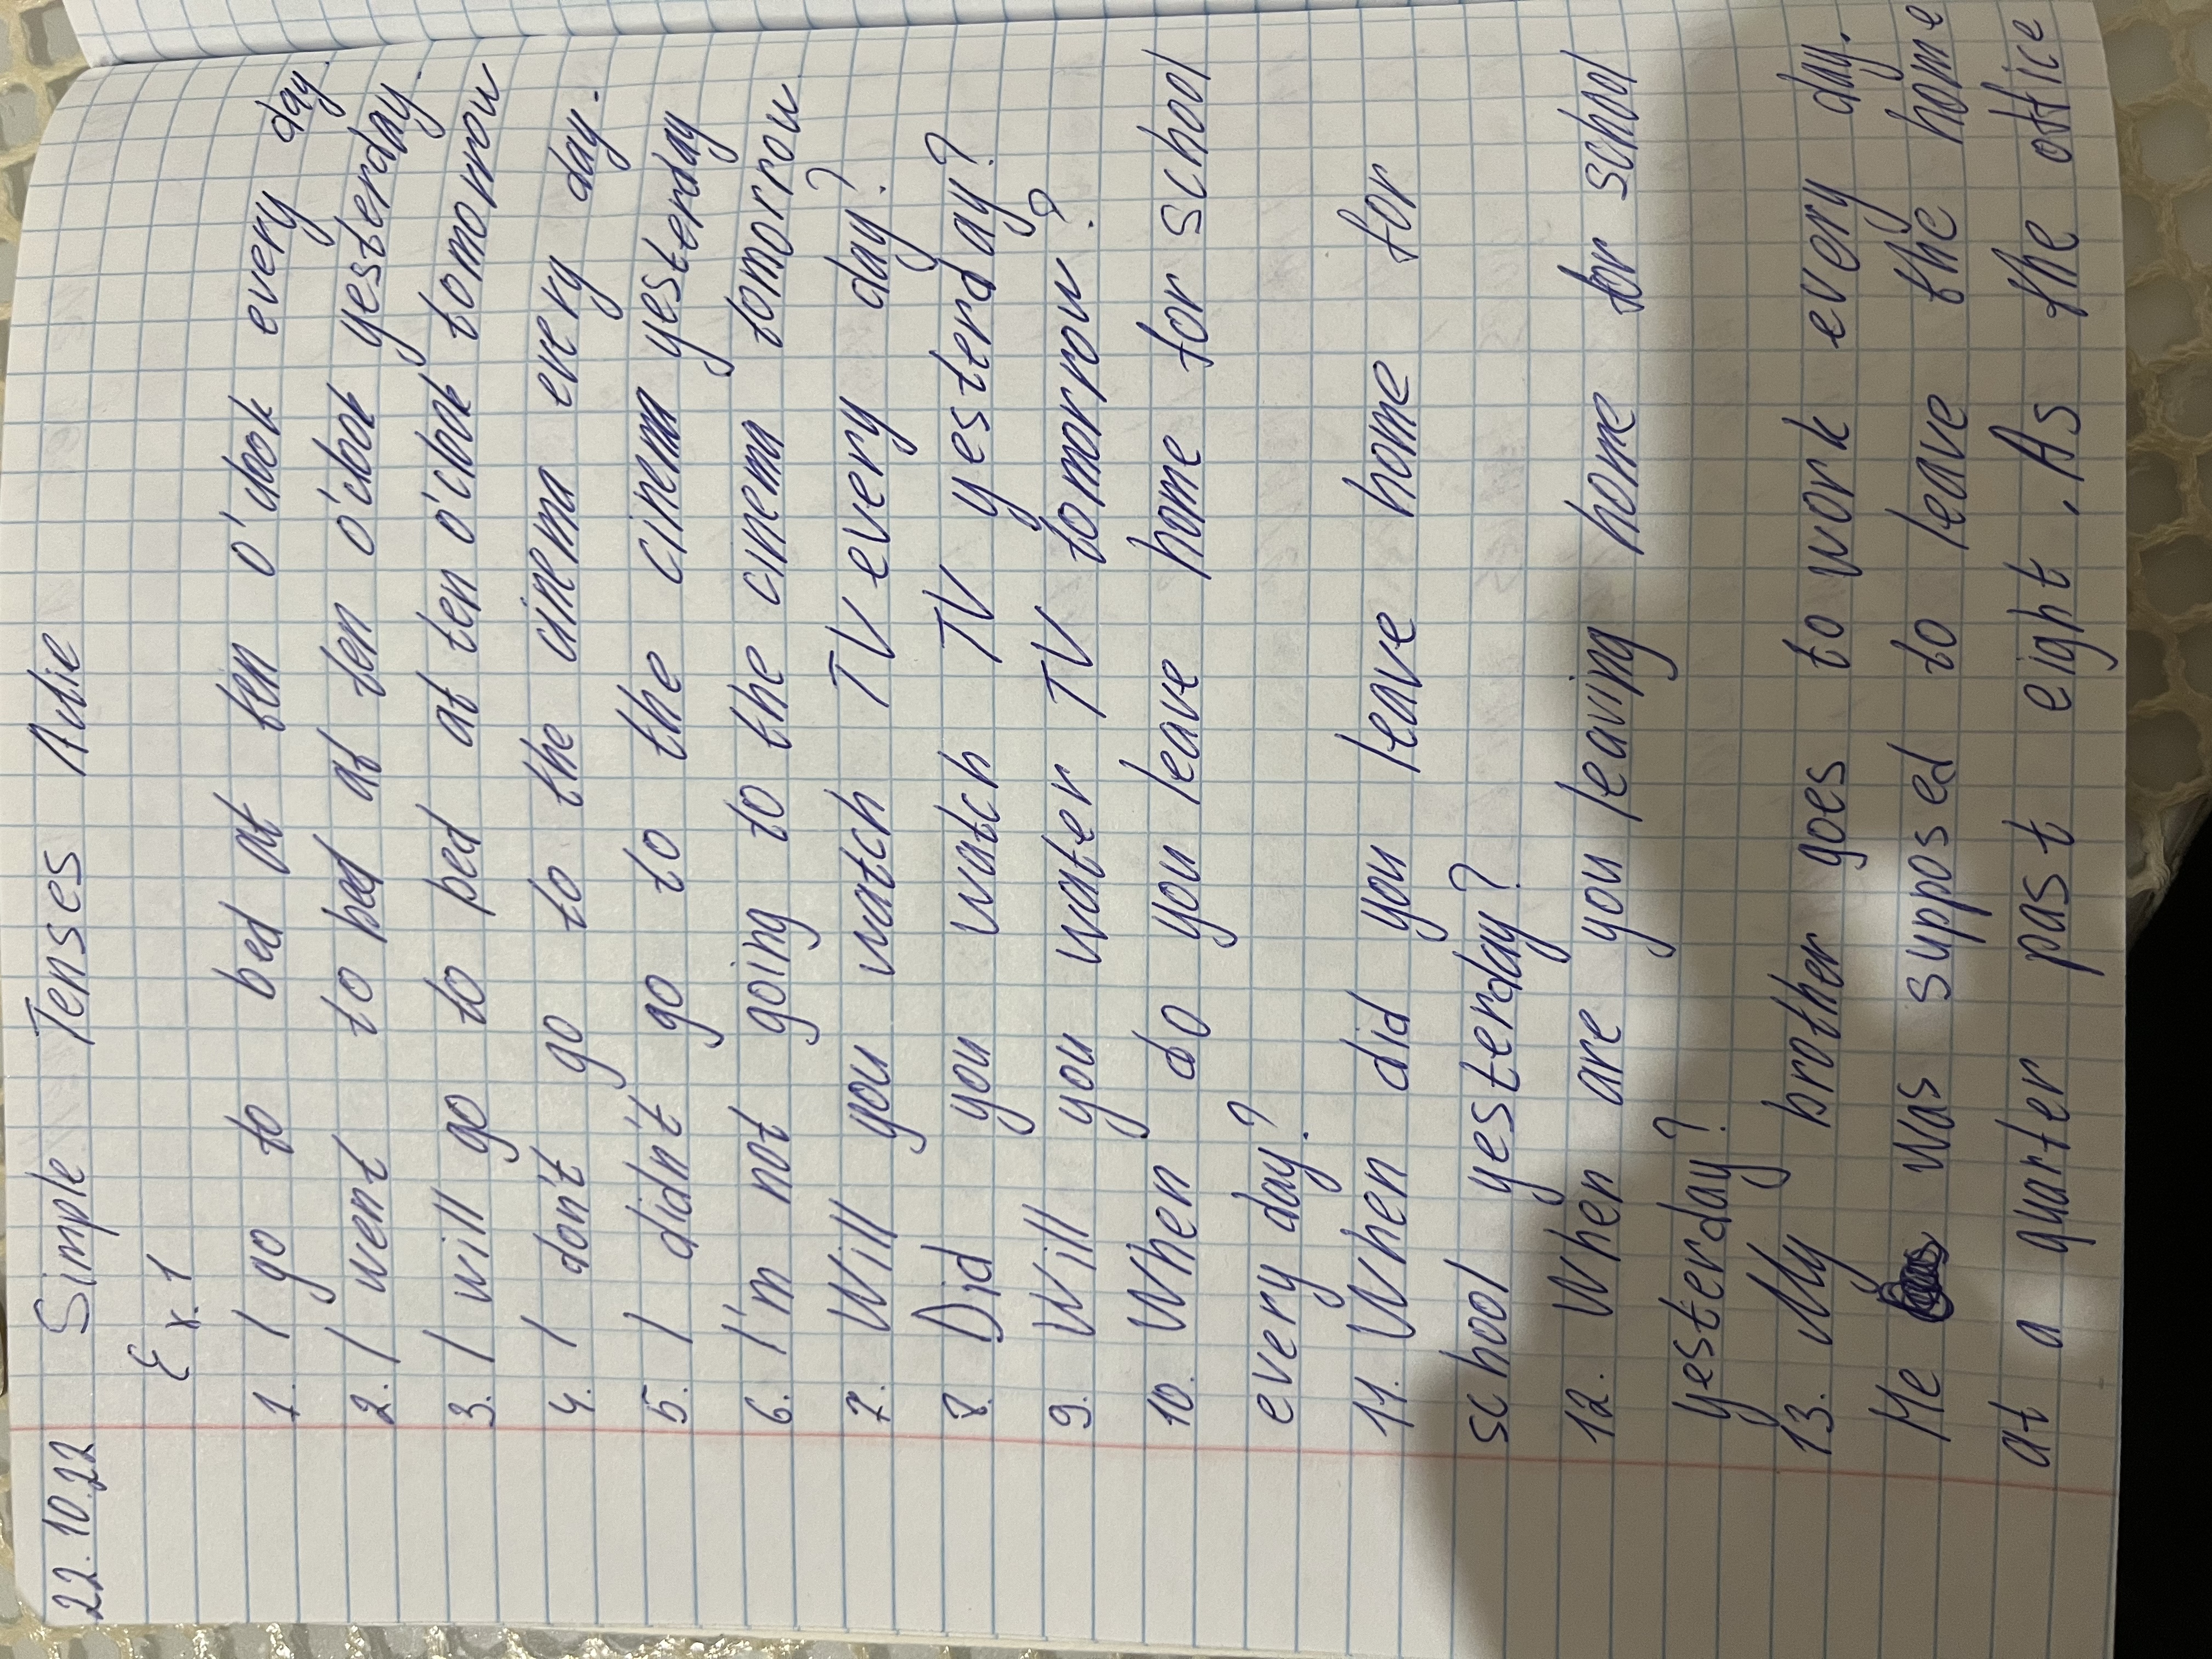 22.10.22 Simple Tenses Active
Ex. 1
1. I go to bed at ten o'clock every day.
2. I went to bed at ten o'clock yesterday.
3. I will go to bed at ten o'clock tomorrow
4. I don't go to the cinema every day.
5. I didn't go to the cinema yesterday
6. I'm not going to the cinema tomorrow
7. Will you watch TV every day?
8. Did you watch TV yesterday?
9. Will you water TV tomorrow?
10. When do you leave home for school
every day?
11. When did you leave home for
school yesterday?
12. When are you leaving home for school
yesterday?
13. My brother goes to work every day.
He was supposed to leave the home
at a quarter past eight. As the office